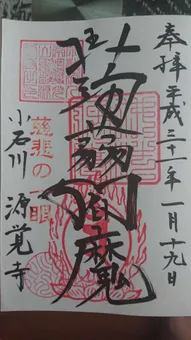 奉拝 平成三十一年一月十九日
蒟蒻閻魔
慈悲の一眼
小石川 源覚寺